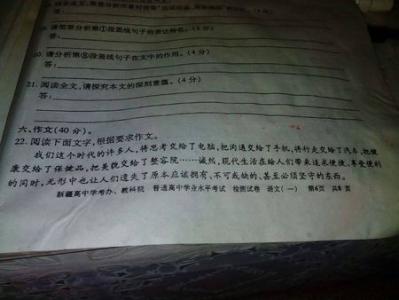 答:
9. 请简要分析第①段画线句子的表达特色。(4分)
答:
20. 请分析第⑧段画线句子在文中的作用。(4分)
答:
21. 阅读全文,请探究本文的深刻意蕴。(4分)
答:
六、作文(40分)。
22. 阅读下面文字,根据要求作文。
我们这个时代的许多人,将思考交给了电脑,把沟通交给了手机,将行走交给了汽车,把健
康交给了保健品,把美貌交给了整容院……诚然,现代生活在给人们带来远便捷,享受便利
的同时,无形中也让人们遗失了原本应该拥有、不可或缺的、甚至必须坚守的东西。
新疆高中学考办、教科院 普通高中学业水平考试 检测试卷 语文(一) 第6页 共8页